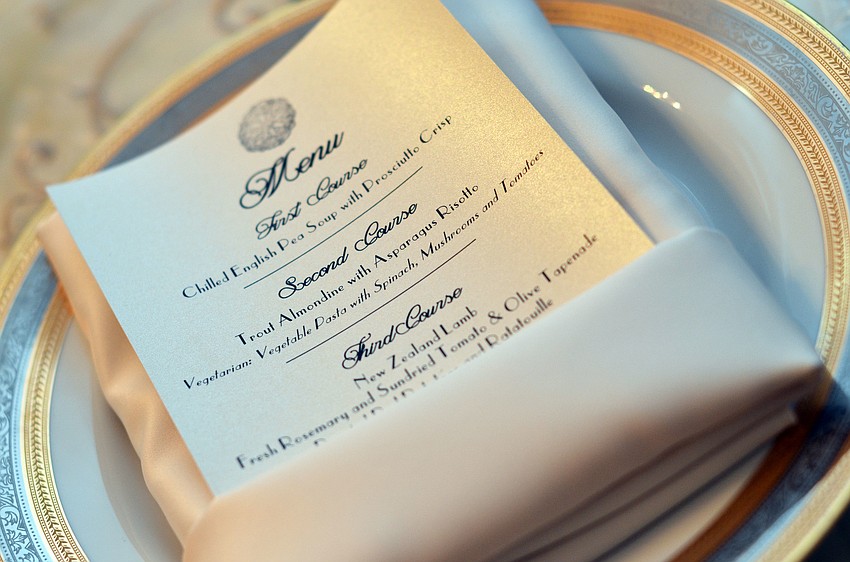 Menu
First Course
Chilled English Pea Soup with Prosciutto Crisp
Second Course
Trout Almondine with Asparagus Risotto
Vegetarian: Vegetable Pasta with Spinach, Mushrooms and Tomatoes
Third Course
New Zealand Lamb
Fresh Rosemary and Sundried Tomato & Olive Tapenade
and Ratatouille